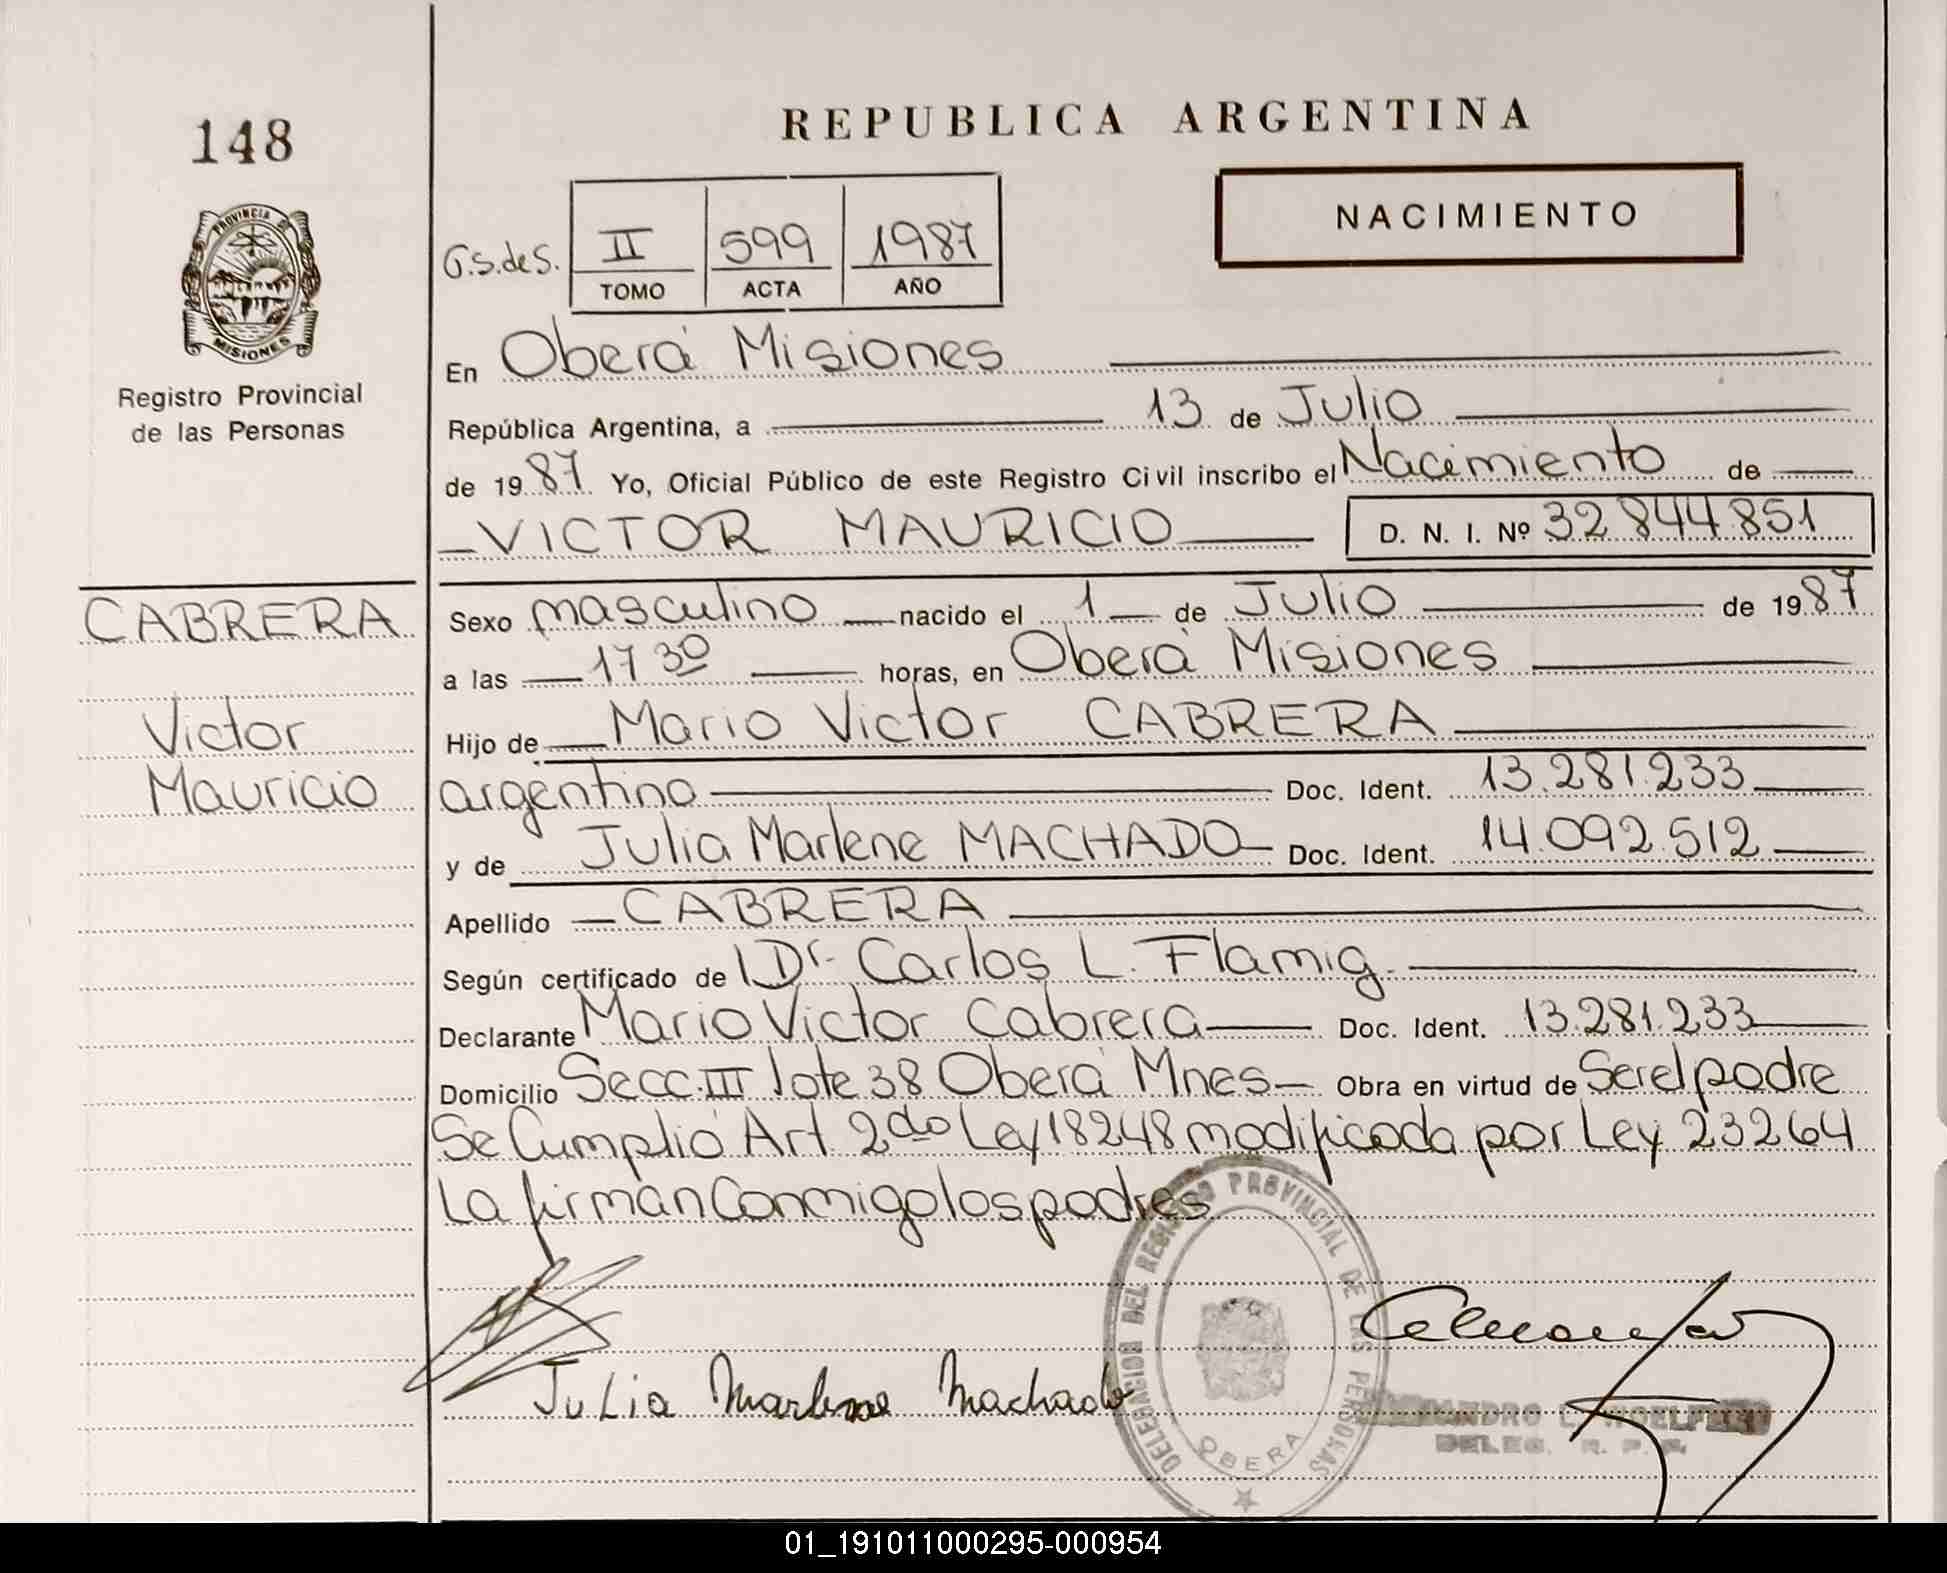 148
REPUBLICA ARGENTINA
NACIMIENTO
G.S.deS. II 599 1987
TOMO ACTA AÑO
PROVINCIA DE MISIONES
Registro Provincial
de las Personas
En Oberá Misiones
República Argentina, a 13 de Julio
de 1987 Yo, Oficial Público de este Registro Civil inscribo el Nacimiento de
VICTOR MAURICIO D. N. I. Nº 32.844.851
CABRERA
Victor
Mauricio
Sexo masculino nacido el 1 de Julio de 1987
a las 17 30 horas, en Oberá Misiones
Hijo de Mario Victor CABRERA
argentino Doc. Ident. 13.281.233
y de Julia Marlene MACHADO Doc. Ident. 14.092.512
Apellido CABRERA
Según certificado de Dr. Carlos L. Flamig.
Declarante Mario Victor Cabrera Doc. Ident. 13.281.233
Domicilio Secc. III lote 38 Oberá Mnes Obra en virtud de Ser el padre
Se Cumplió Art. 2do Ley 18248 modificada por Ley 23264
La firman Conmigo los padres
DELEGACION DEL REGISTRO PROVINCIAL DE LAS PERSONAS
OBERA
Julia Marlene Machado
DELEG. R. P. P.
01_191011000295-000954